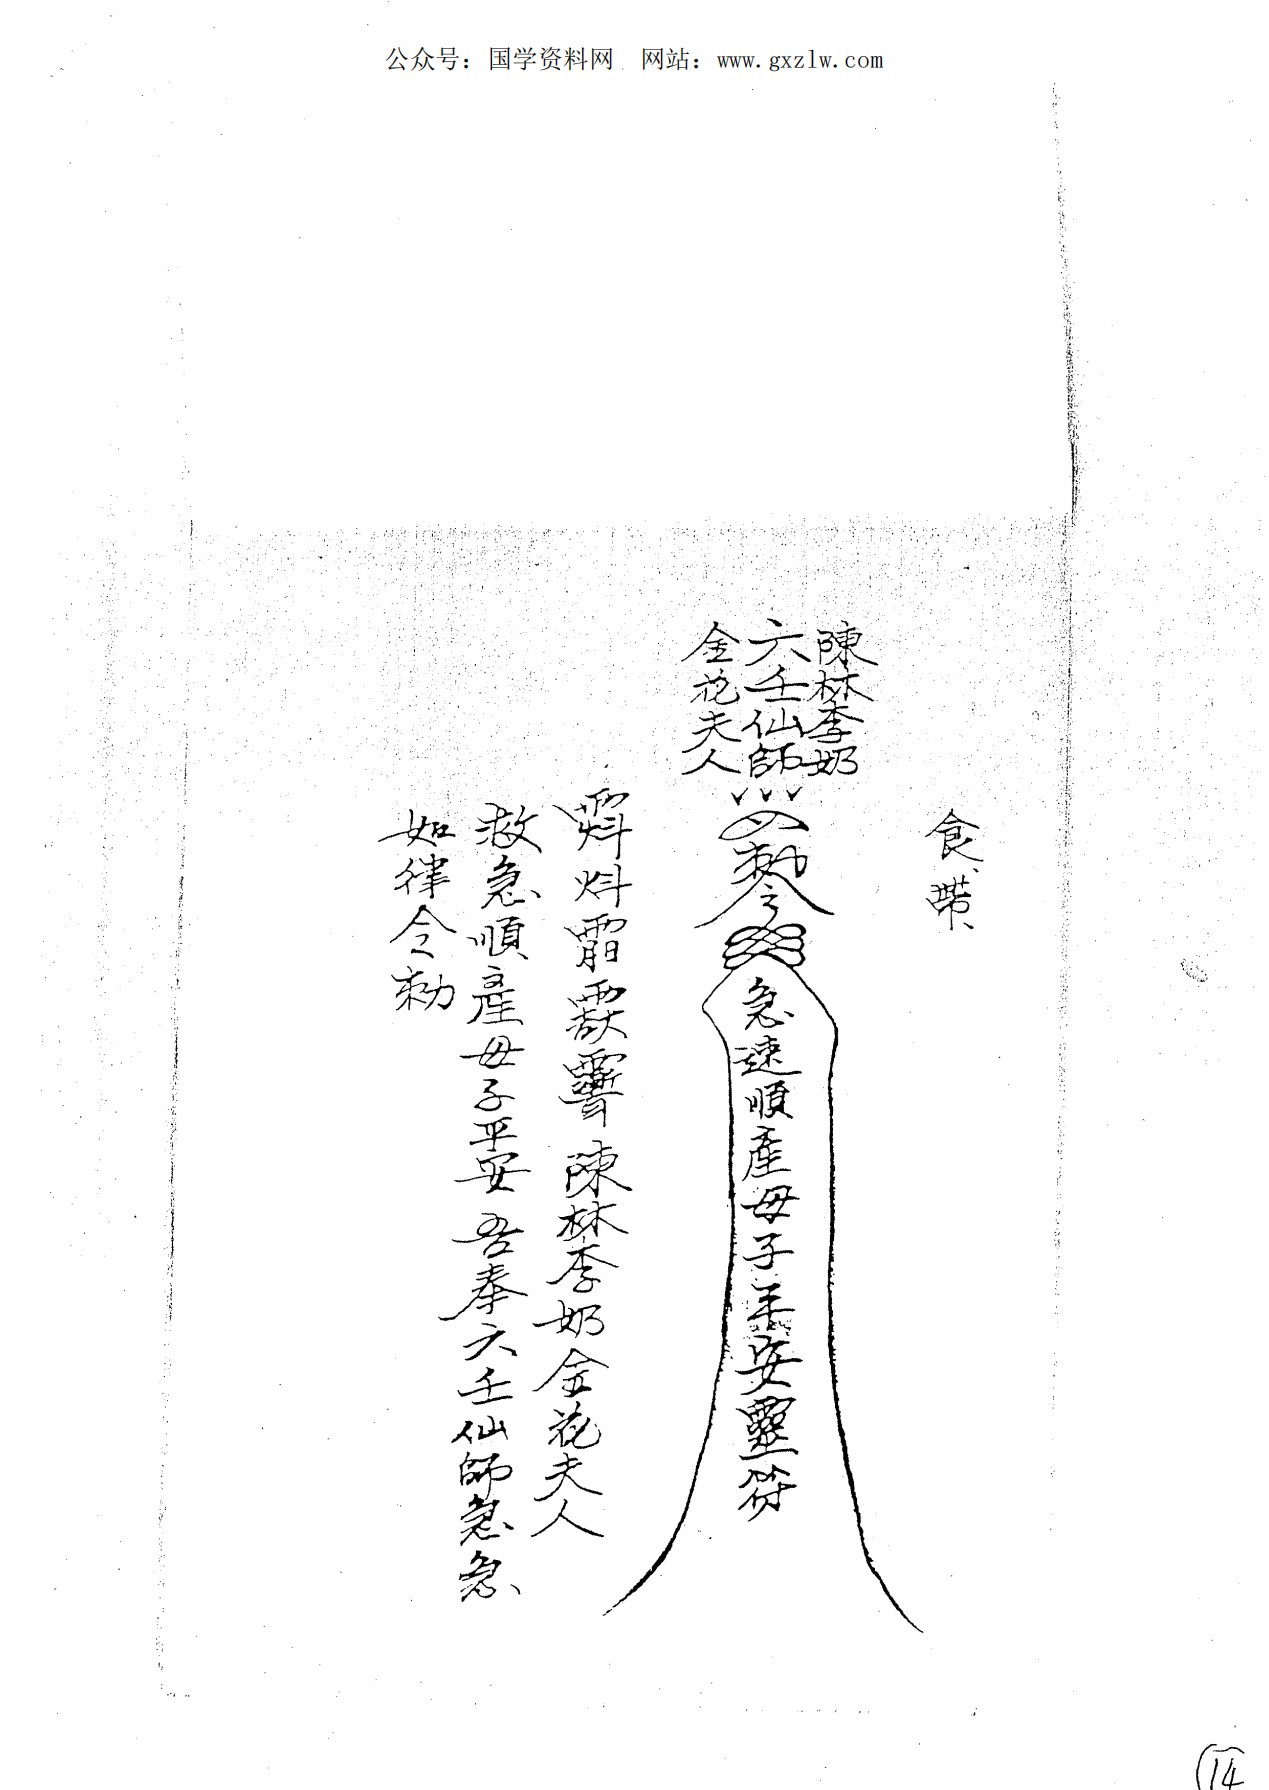 公众号：国学资料网 网站：www.gxzlw.com
食、帶、
陳林李奶
六壬仙師
金花夫人
勅令
急速順產母子平安靈符
陳林李奶金花夫人
救急順產母子平安 吾奉六壬仙師急急
如律令勅
14